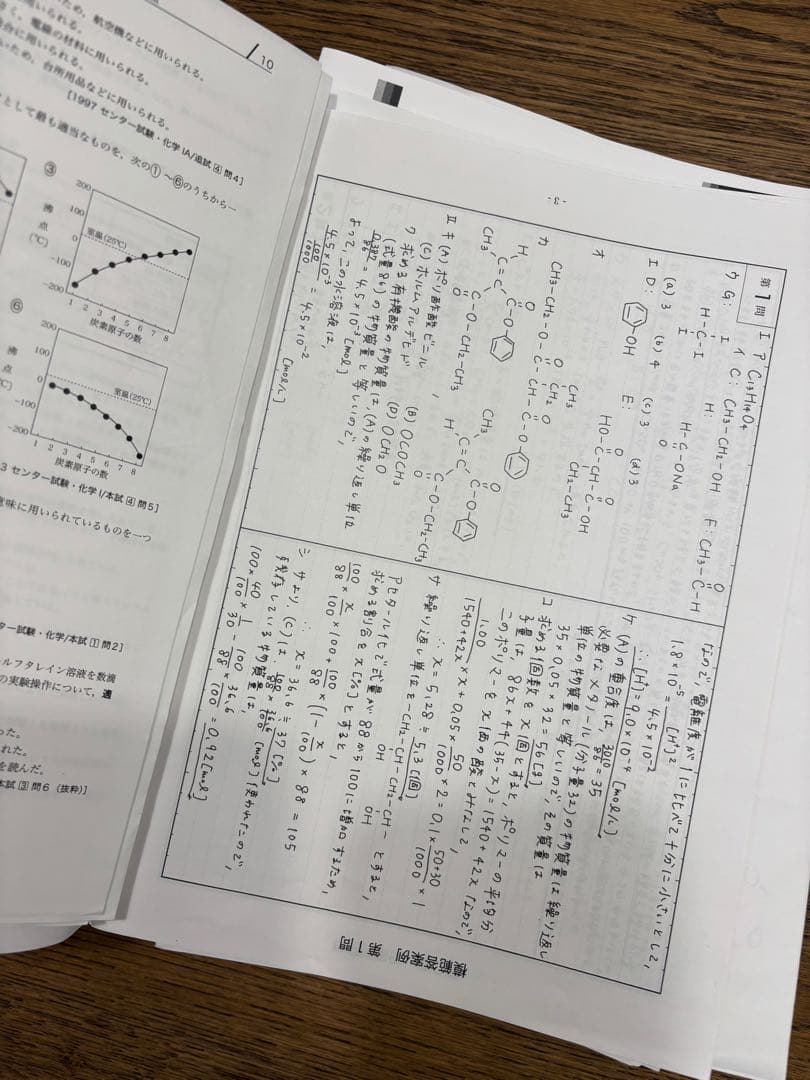 め、航空機などに用いられる。
いられる。
、電線の材料に用いられる。
合に用いられる。
いため、台所用品などに用いられる。
[1997 センター試験・化学IA/追試 4 問4]
10
として最も適当なものを、次の①~⑥のうちから一
③
200
100
0
−100
−200
沸点(℃)
室温(25℃)
1 2 3 4 5 6 7 8
炭素原子の数
⑥
200
100
0
−100
−200
沸
点
室温(25℃)
1 2 3 4 5 6 7 8
炭素原子の数
3 センター試験・化学I/本試 4 問5]
意味に用いられているものを一つ
ター試験・化学/本試 1 問2]
ルフタレイン溶液を数滴
の実験操作について、適
った。
れた。
を読んだ。
本試 3 問6(抜粋)]
-3-
第1問
I ア C₁₃H₁₄O₄
イ C: CH₃-CH₂-OH F: CH₃-C-H
O
ウ G: H-C-I
I
I
H: H-C-ONa
O
(a) 3 (b) 4 (c) 3 (d) 3
エ D: OH E: HO-C-CH-C-OH
O O
CH₂-CH₃
オ
CH₃
CH₂
CH₃-CH₂-O-C-CH-C-O
O O
カ
H C=C C-O
CH₃ C-O-CH₂-CH₃
O
O
CH₃ C=C C-O
H C-O-CH₂-CH₃
O
O
II キ (A) ポリ酢酸ビニル, (B) OCOCH₃
(C) ホルムアルデヒド (D) OCH₂O
ク 求める有機酸の物質量は、(A)の繰り返し単位
(式量86)の物質量と等しいので、
0.387/86 = 4.5×10⁻³ [mol]
よって、この水溶液は、
4.5×10⁻³/(100/1000) = 4.5×10⁻² [mol/L]
なので、電離度が1に比べて十分に小さいとして、
1.8×10⁻⁵ = [H⁺]²/4.5×10⁻²
∴ [H⁺] = 9.0×10⁻⁴ [mol/L]
ケ (A)の重合度は、3010/86 = 35
必要なメタノール(分子量32)の物質量は繰り返し
単位の物質量と等しいので、その質量は
35×0.05×32 = 56 [g]
コ 求める個数をx個とすると、ポリマーの平均分
子量は、86x+44(35-x) = 1540+42x なので、
このポリマーをx価の酸とみなして、
1.00/(1540+42x) × x + 0.05 × 50/1000 × 2 = 0.1 × (50+30)/1000 × 1
∴ x = 5.28 ≒ 5.3 [個]
サ 繰り返し単位を -CH₂-CH-CH₂-CH- とすると、
OH OH
アセタール化で式量が88から100に増加するため、
求める割合をx[%]とすると、
100/88 × x/100 × 100 + 100/88 × (1 - x/100) × 88 = 105
∴ x = 36.6 ≒ 37 [%]
シ サより、(C)は 100/88 × 36.6/100 [mol] 使われたので、
残存している物質量は、
100 × 40/100 × 1/30 - 100/88 × 36.6/100 = 0.92 [mol]
模範答案例 第1問